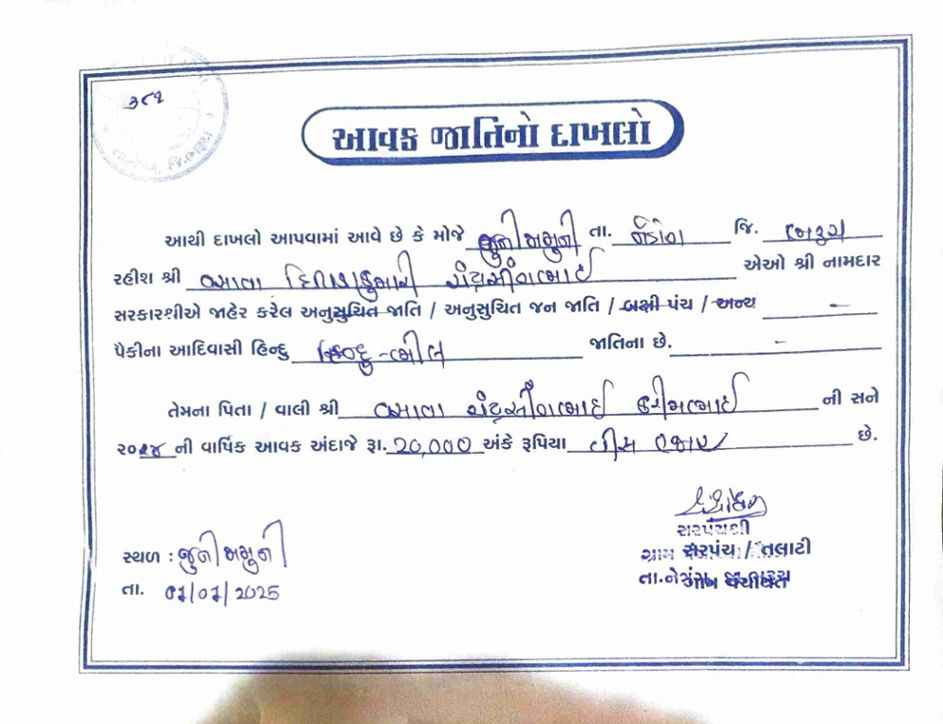 ૩૮૧
આવક જાતિનો દાખલો
આથી દાખલો આપવામાં આવે છે કે મોજે જુની જામુની તા. જિ. ભરૂચ
રહીશ શ્રી વસાવા ચંદ્રસીંગભાઈ એઓ શ્રી નામદાર
સરકારશ્રીએ જાહેર કરેલ અનુસુચિત જાતિ / અનુસુચિત જન જાતિ / બક્ષી પંચ / અન્ય -
પૈકીના આદિવાસી હિન્દુ હિન્દુ-ભીલ જાતિના છે. -
તેમના પિતા / વાલી શ્રી વસાવા ચંદ્રસીંગભાઈ ની સને
૨૦૨૪ ની વાર્ષિક આવક અંદાજે રૂા. 20,000 અંકે રૂપિયા વીસ હજાર છે.
સરપંચશ્રી
સ્થળ : જુની જામુની
ગ્રામ સરપંચ / તલાટી
તા. 01/07/2025